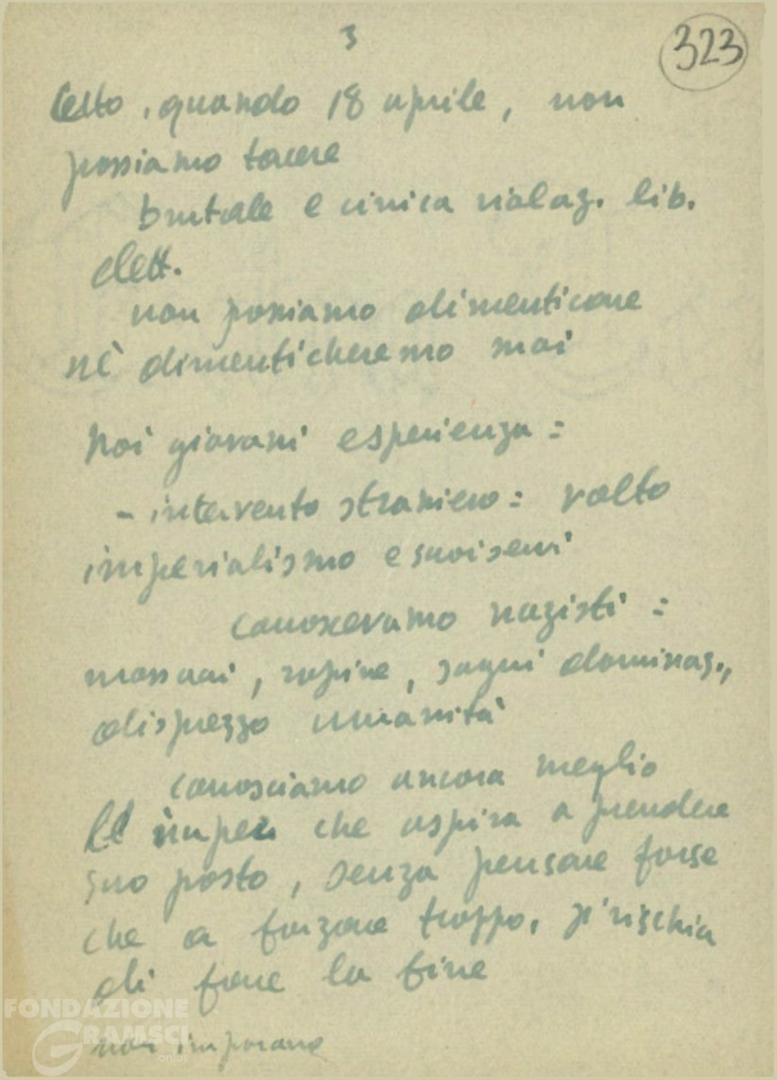 3
323
Certo, quando 18 aprile, non
possiamo tacere
brutale e cinica violaz. lib.
elett.
non possiamo dimenticare
nè dimenticheremo mai
Noi giovani esperienza:
- intervento straniero: volto
imperialismo e suoi servi
conoscevamo nazisti:
massacri, rapine, sogni dominaz.,
disprezzo umanità
conosciamo ancora meglio
imper. che aspira a prendere
suo posto, senza pensare forse
che a forzare troppo, si rischia
di fare la fine
non imparano
FONDAZIONE
GRAMSCI
onlus